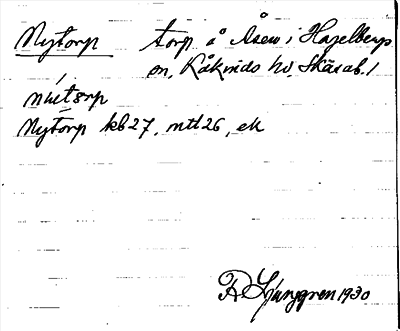 Nytorp torp å Åsen i Hasselberga
sn, Kåkinds hd, Skarab. l
nhetorp
Nytorp kb27, mtl26, ek
R Ljunggren 1930